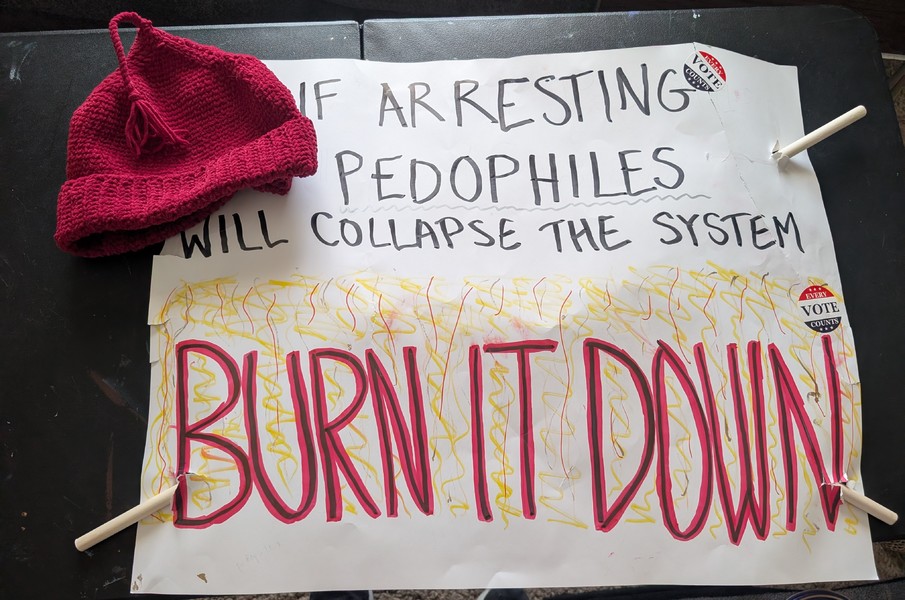 IF ARRESTING
EVERY
VOTE
COUNTS
PEDOPHILES
WILL COLLAPSE THE SYSTEM
EVERY
VOTE
COUNTS
BURN IT DOWN